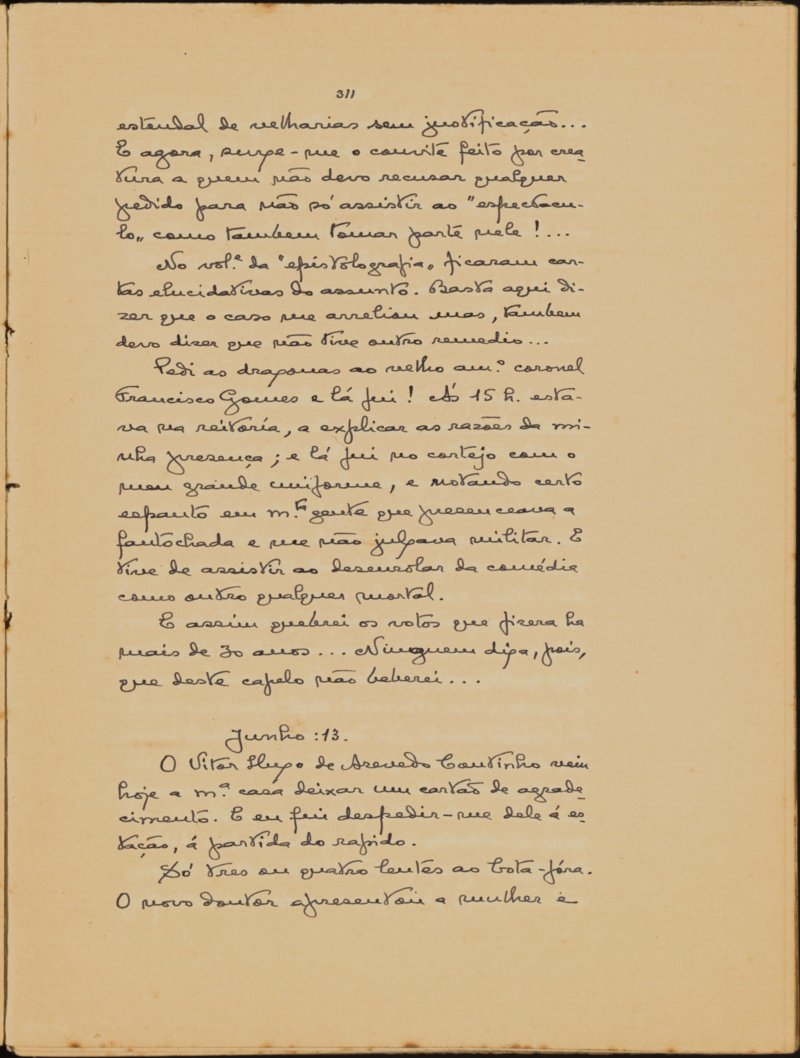 311
estendal de velharias sem justificação...
E agora, surge-me o convite feito por crea-
tura a quem não devo recusar qualquer
pedido para não só assistir ao "espectacu-
lo„ como tambem tomar parte nele!...
No vol.e da "epistolografia„ ficaram car-
tas elucidativas do assunto. Basta aqui di-
zer que o caso me arreliou mas, tambem
devo dizer que não tive outro remedio...
Pedi as dragonas ao velho am.º coronel
Francisco Gomes e lá fui! Ás 15 h. esta-
va na reitoría, a explicar as razões da mi-
nha presença; e lá fui no cortejo com o
meu grande uniforme, e notando certo
espanto em m.ta gente que presenceava a
fantochada e me não julgava militar. E
tive de assistir ao desenrolar da comédia
como outro qualquer mortal.
E assim quebrei os votos que fizera ha
mais de 30 anos... Ninguem diga, pois,
que deste capelo não beberei...
Junho: 13.
O Vitor Hugo de Azevedo Coutinho veiu
hoje a m.ª casa deixar um cartão de agrade-
cimento. E eu fui despedir-me dele á es-
tação, á partida do rapido.
Só tres ou quatro lentes ao bota-fóra.
O novo doutor apresentou a mulher e